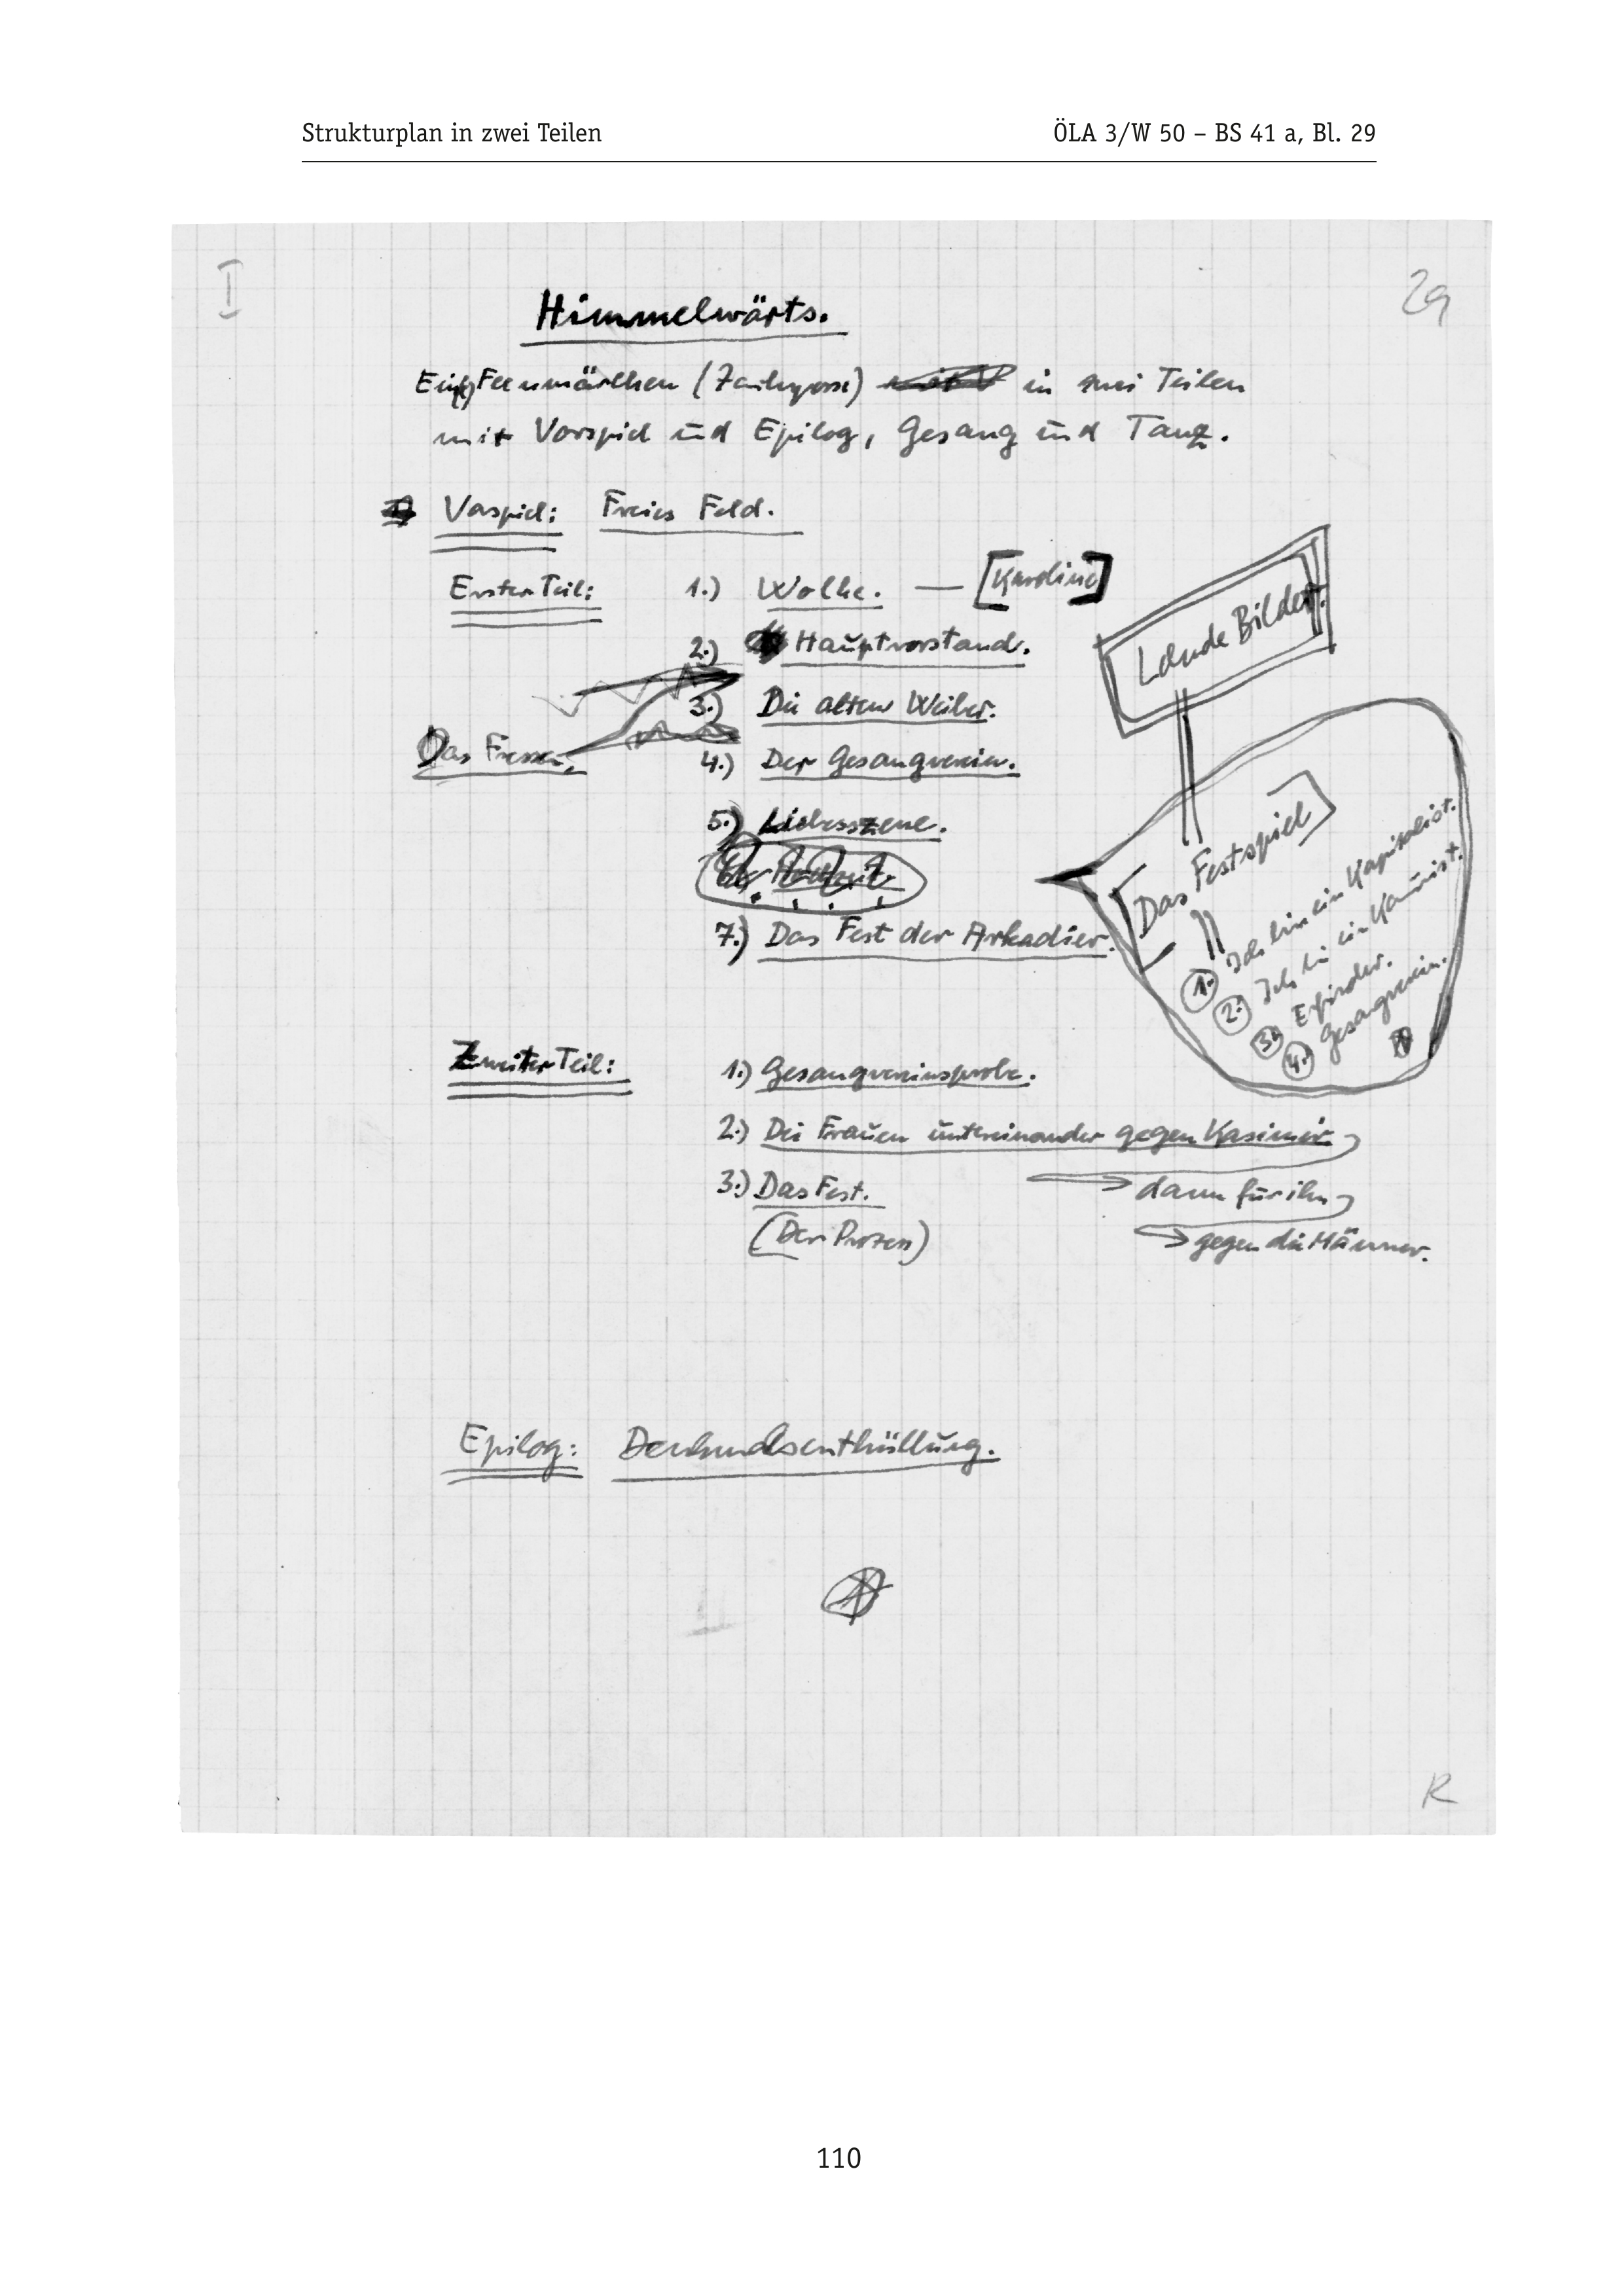 Strukturplan in zwei Teilen
ÖLA 3/W 50 – BS 41 a, Bl. 29
I
29
Himmelwärts.
Ein Feenmärchen (Zauberposse) in zwei Teilen
mit Vorspiel und Epilog, Gesang und Tanz.
Vorspiel: Freies Feld.
Erster Teil: 1.) Wolke. — [Karoline]
2.) Hauptvorstand.
3.) Die alten Weiber.
Das Fressen.
4.) Der Gesangverein.
5.) Liebesszene.
7.) Das Fest der Arkadier.
Lebende Bilder.
Das Festspiel
1. Ich bin ein Kapitalist.
2. Ich bin ein Komunist.
3. Erfinder.
4. Gesangverein.
Zweiter Teil: 1.) Gesangvereinsprobe.
2.) Die Frauen untereinander gegen Kasimir
dann für ihn
gegen die Männer.
3.) Das Fest.
(Der Prozess)
Epilog: Denkmalsenthüllung.
R
110